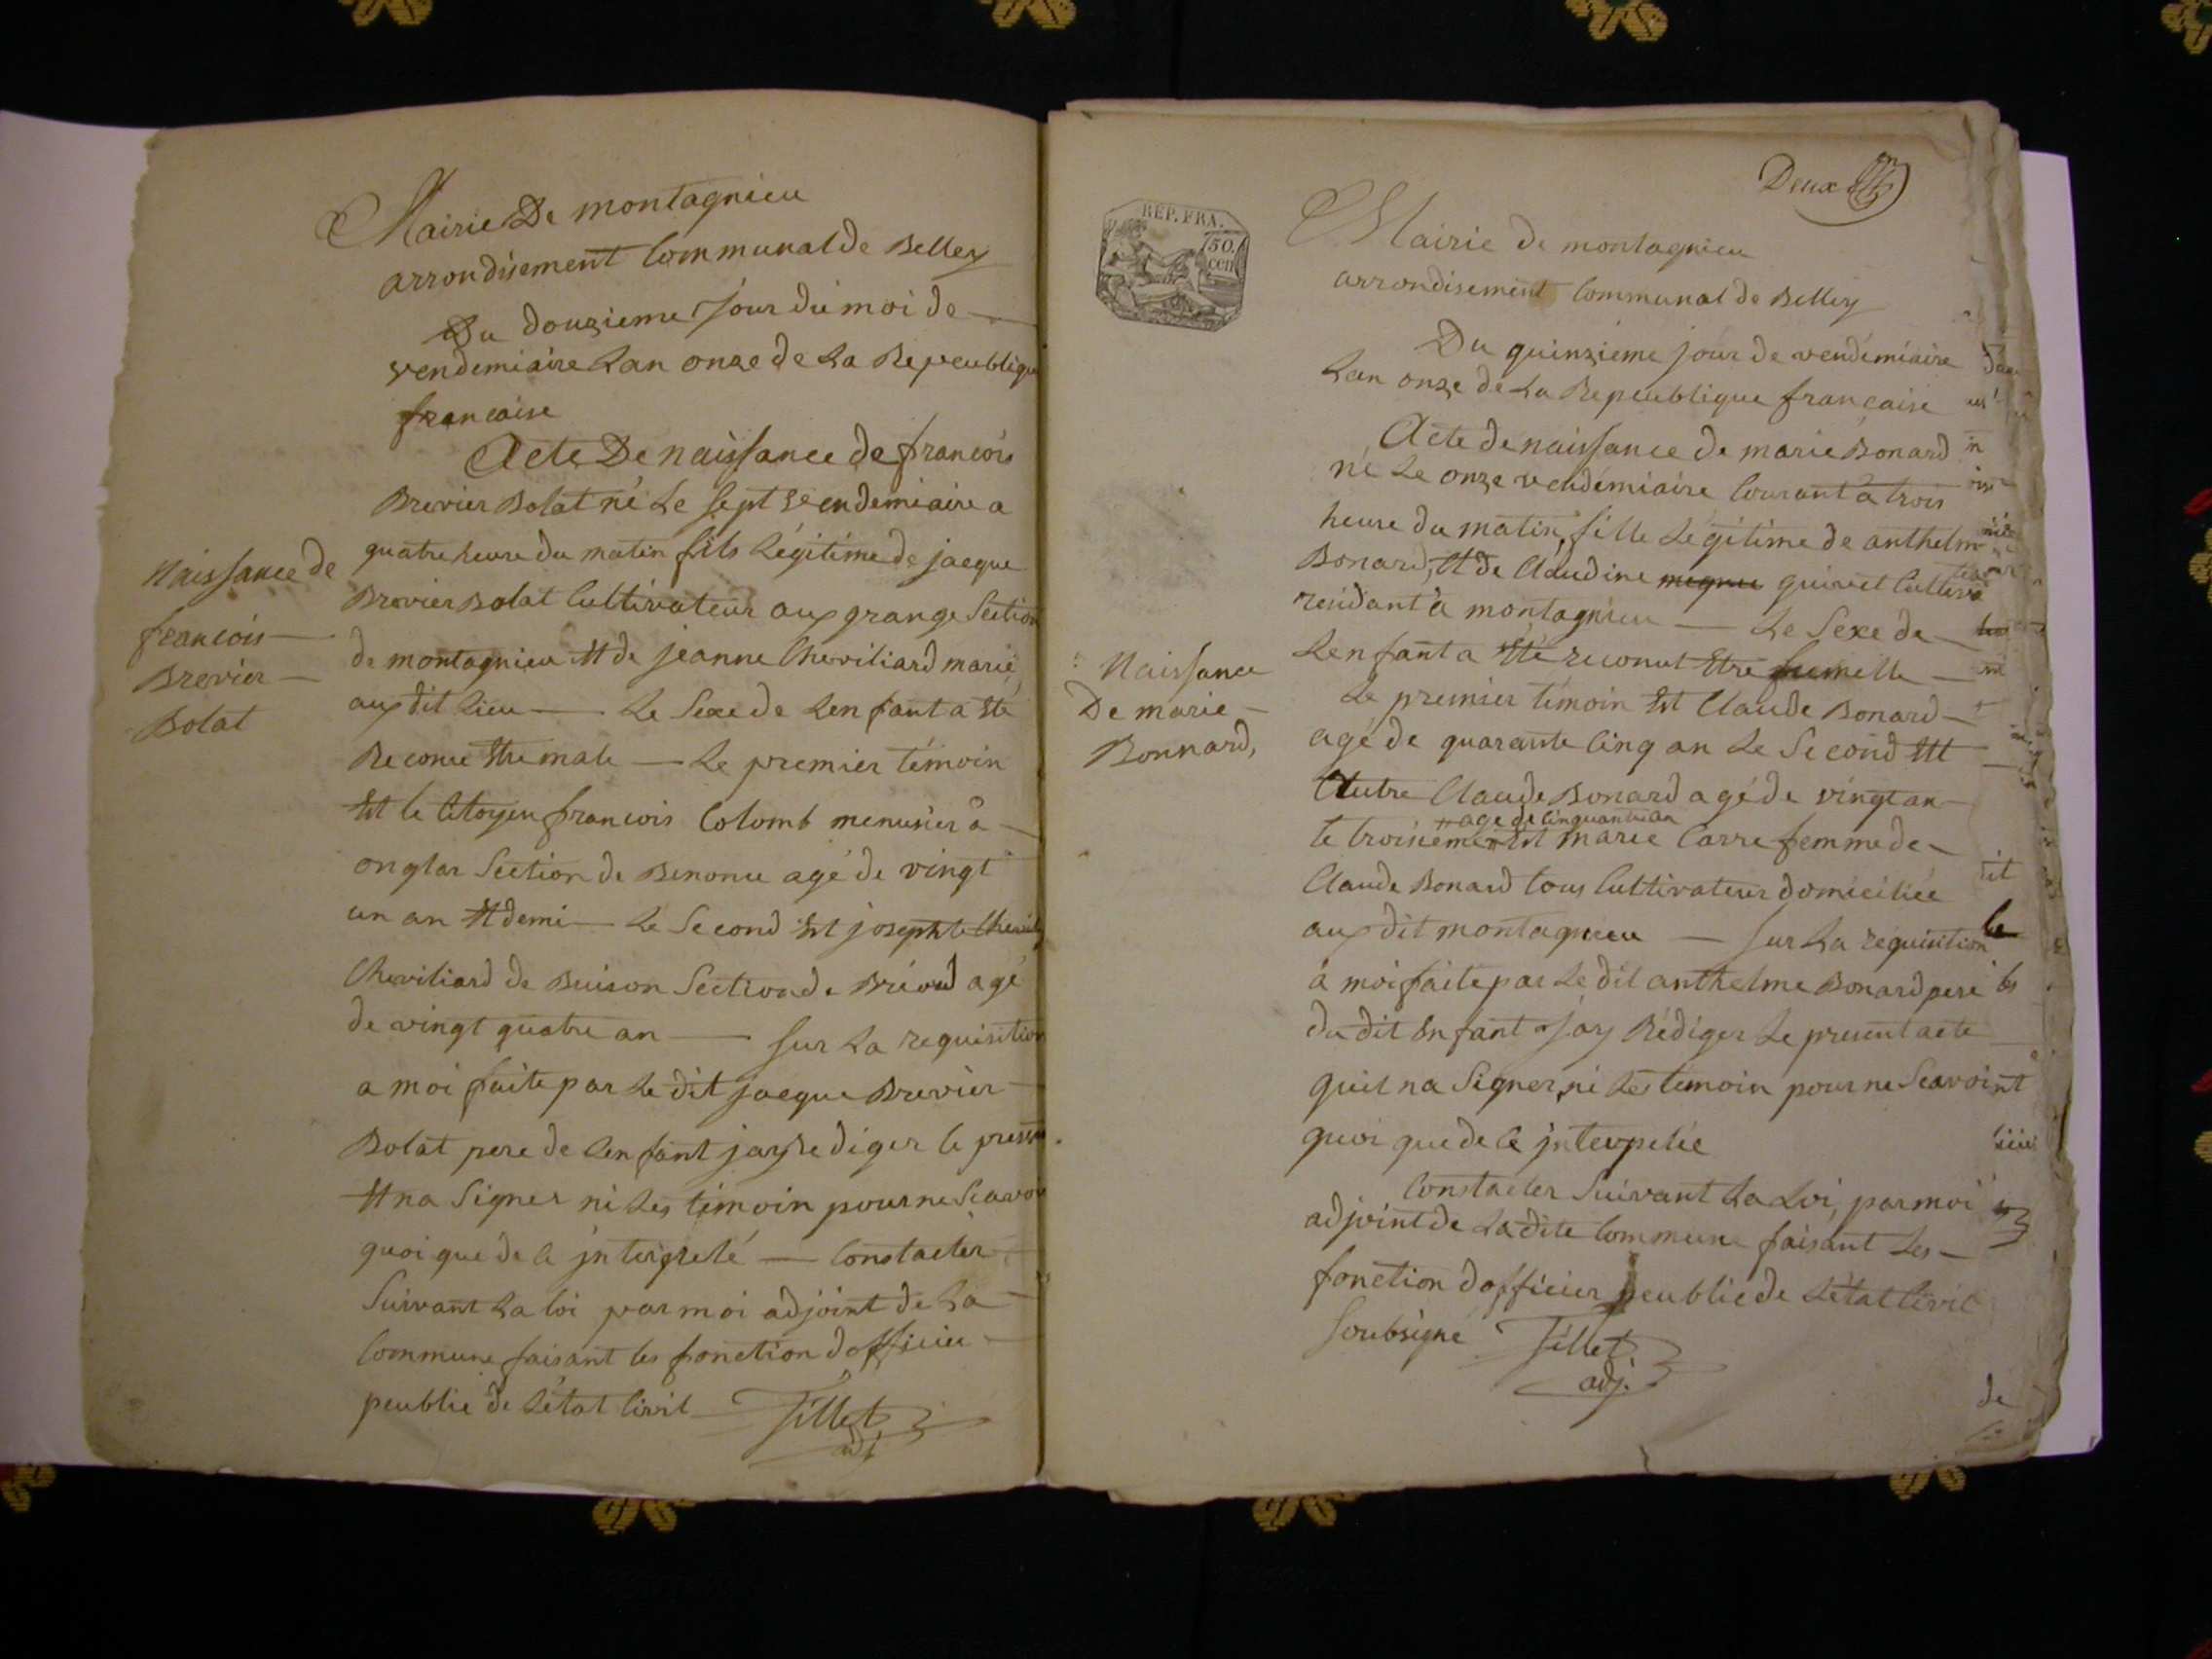 Mairie De montagnieu
arrondisement Communal de Belley
Du douzieme jour du moi de
vendemiaire Lan onze de La Repeublique
francaise
Acte De naissance de francois
Brevier Bolat né Le sept vendemiaire a
quatre heure du matin fils Légitime de jacque
Naissance de
francois
Brevier
Bolat
Brevier Bolat Cultivateur aux grange Section
de montagnieu Et de jeanne Cheviliard marié
aux dit Lieu — Le Sexe de Lenfant a Eté
Reconu Etre male — Le premier témoin
Est le Citoyen francois Colomb menusier a
onglas Section de Benonce agé de vingt
un an Et demi — Le Second Est joseph
Cheviliard de Buison Section de Briord agé
de vingt quatre an — Sur La requisition
a moi faite par Le dit jacque Brevier
Bolat pere de Lenfant jay Rediger le present
Et na Signer ni Les témoin pour ne Scavoir
quoi que de ce jnterpelé — Constater
Suivant La loi par moi adjoint de La
Commune faisant les fonction dofficier
peublic de Létat Civil Tillet
adj
Deux
REP. FRA.
50.
cen
Mairie de montagnieu
arrondisement Communal de Belley
Du quinzieme jour de vendémiaire
Lan onze de La Repeublique francaise
Acte de naissance de marie Bonard
né Le onze vendémiaire Courant a trois
heure du matin, fille Légitime de anthelm
Bonard, Et de Claudine quivet Cultiva
teur
residant a montagnieu — Le Sexe de
Lenfant a Eté reconut Etre fumelle
Naissance
De marie
Bonnard,
Le premier témoin Est Claude Bonard
agé de quarante Cinq an Le Second Est
Autre Claude Bonard agé de vingt an
age de Cinquante an
le troisieme Est marie Carre femme de
Claude Bonard tous Cultivateur domiciliée
aux dit montagnieu — Sur La réquisition
a moi faite par Le dit anthelme Bonard pere
du dit Enfant jay Rédiger Le present acte
quil na Signer, ni Les temoin pour ne Scavoint
quoi que de ce jnterpelée
Constater Suivant La Loi, par moi
adjoint de Ladite Commune faisant Les
fonction dofficier peublic de Létat Civil
Soubsigné Tillet
adj.